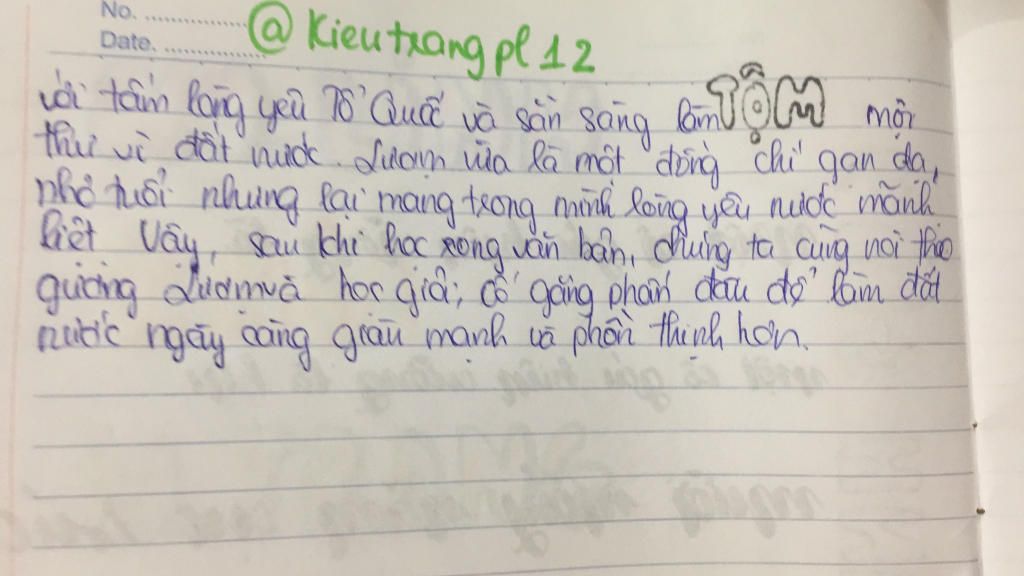 No. ................
Date. ..............
@Kieutrangpl12
với tấm lòng yêu Tổ Quốc và sẵn sàng làm TỘM mọi
thứ vì đất nước. Lượm vừa là một đồng chí gan dạ,
nhỏ tuổi nhưng lại mang trong mình lòng yêu nước mãnh
liệt Vậy, sau khi học xong văn bản, chúng ta cùng noi theo
gương Lượm và học giỏi, cố gắng phấn đấu để làm đất
nước ngày càng giàu mạnh và phồn thịnh hơn.